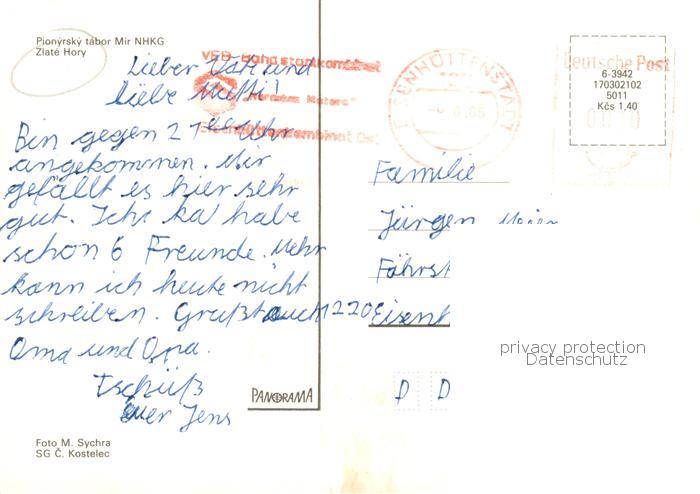 Pionýrský tábor Mír NHKG
Zlaté Hory
Lieber Vati und
liebe Mutti!
Bin gegen 21 00 Uhr
angekommen. Mir
gefällt es hier sehr
gut. Ich ka habe
schon 6 Freunde. Mehr
kann ich heute nicht
schreiben. Grüßt auch
Oma und Opa.
Tschüß
Euer Jens
Foto M. Sychra
SG Č. Kostelec
PANORAMA
VEB Bandstahlkombinat
"Hermann Matern"
EISENHÜTTENSTADT
Deutsche Post
6-3942
170302102
5011
Kčs 1,40
Familie
Jürgen
Fährst
1220 Eisenh
D D
privacy protection
Datenschutz